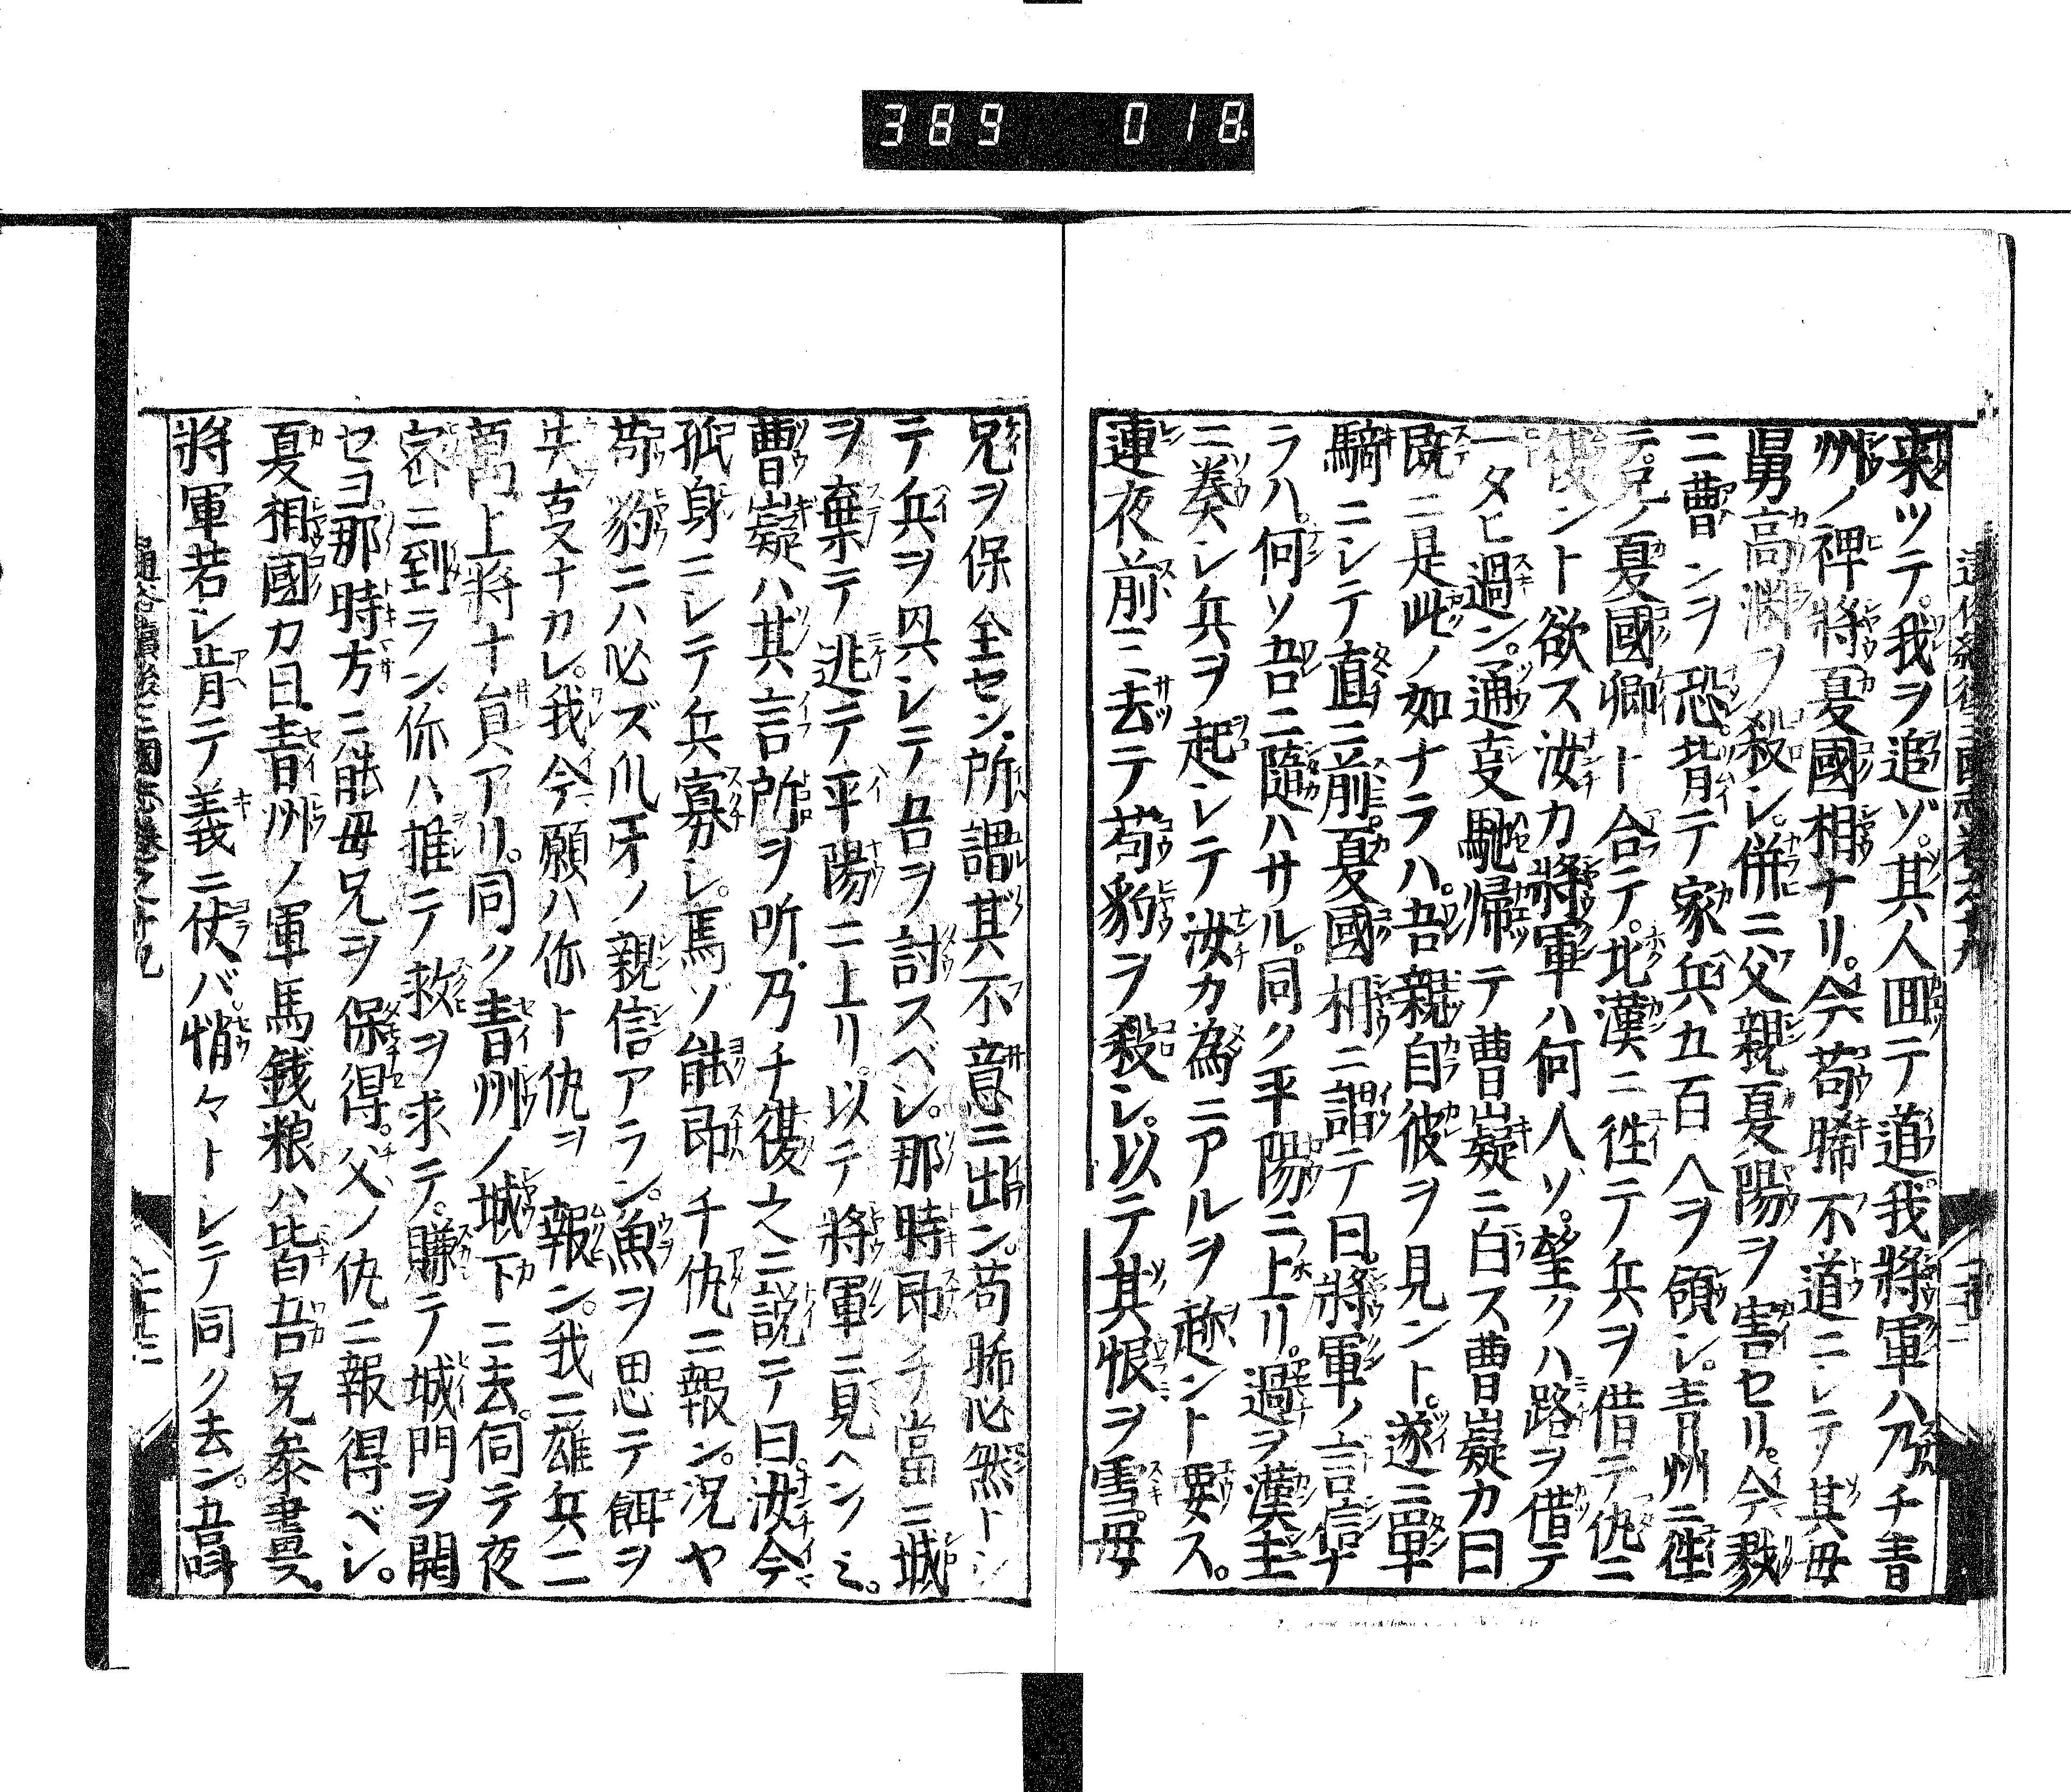 389 018
来ツテ我ヲ追ゾ。其人回テ道我將軍ハ乃チ青
州ノ裨將夏國相ナリ。今苟晞不道ニシテ其母
舅高渕ヲ殺シ。併ニ父親夏陽ヲ害セリ。今戮
ニ曹ンヲ恐。背テ家兵五百人ヲ領シ。青州ニ往
テ。兄ノ夏國卿ト合テ。北漢ニ往テ兵ヲ借テ仇ニ
復ント欲ス汝カ將軍ハ何人ゾ。望クハ路ヲ借テ
一タヒ過ン。通事馳帰テ曹嶷ニ白ス曹嶷カ曰
既ニ是此ノ如ナラハ。吾親自彼ヲ見ント。遂ニ單
騎ニシテ直ニ前。夏國相ニ謂テ曰。將軍ノ言信ナ
ラハ。何ソ吾ニ隨ハサル。同ク平陽ニ上リ。過ヲ漢主
ニ奏シ兵ヲ起シテ汝カ為ニアルヲ趂ント要ス。
連夜前ミ去テ苟豹ヲ殺シ。以テ其恨ヲ雪。母
兄ヲ保全セン。所謂其不意ニ出ン。苟晞必然トシ
テ兵ヲ具シテ吾ヲ討スベシ。那時即チ當ニ城
ヲ棄テ逃テ平陽ニ上リ。以テ將軍ニ見ヘンノミ。
曹嶷ハ其言所ヲ听。乃チ復之ニ説テ曰。汝今
孤身ニシテ兵寡シ。馬ゾ能即チ仇ニ報ン。況ヤ
苟豹ニハ必ズ爪牙ノ親信アラン。魚ヲ思テ餌ヲ
失支ナカレ。我今願ハ你ト仇ヲ報ン。我ニ雄兵二
萬上將十員アリ。同ク青州ノ城下ニ去。伺テ夜
密ニ到ラン。你ハ推テ救ヲ求テ。賺テ城門ヲ開
セヨ那時方ニ能毋兄ヲ保得。父ノ仇ニ報得ベシ。
夏相國カ曰。青州ノ軍馬錢粮ハ皆吾兄叅畫畀ス。
將軍若シ肯テ義ニ仗バ。悄々トシテ同ク去ン。吾
通俗續後三國志卷之十九
二十三